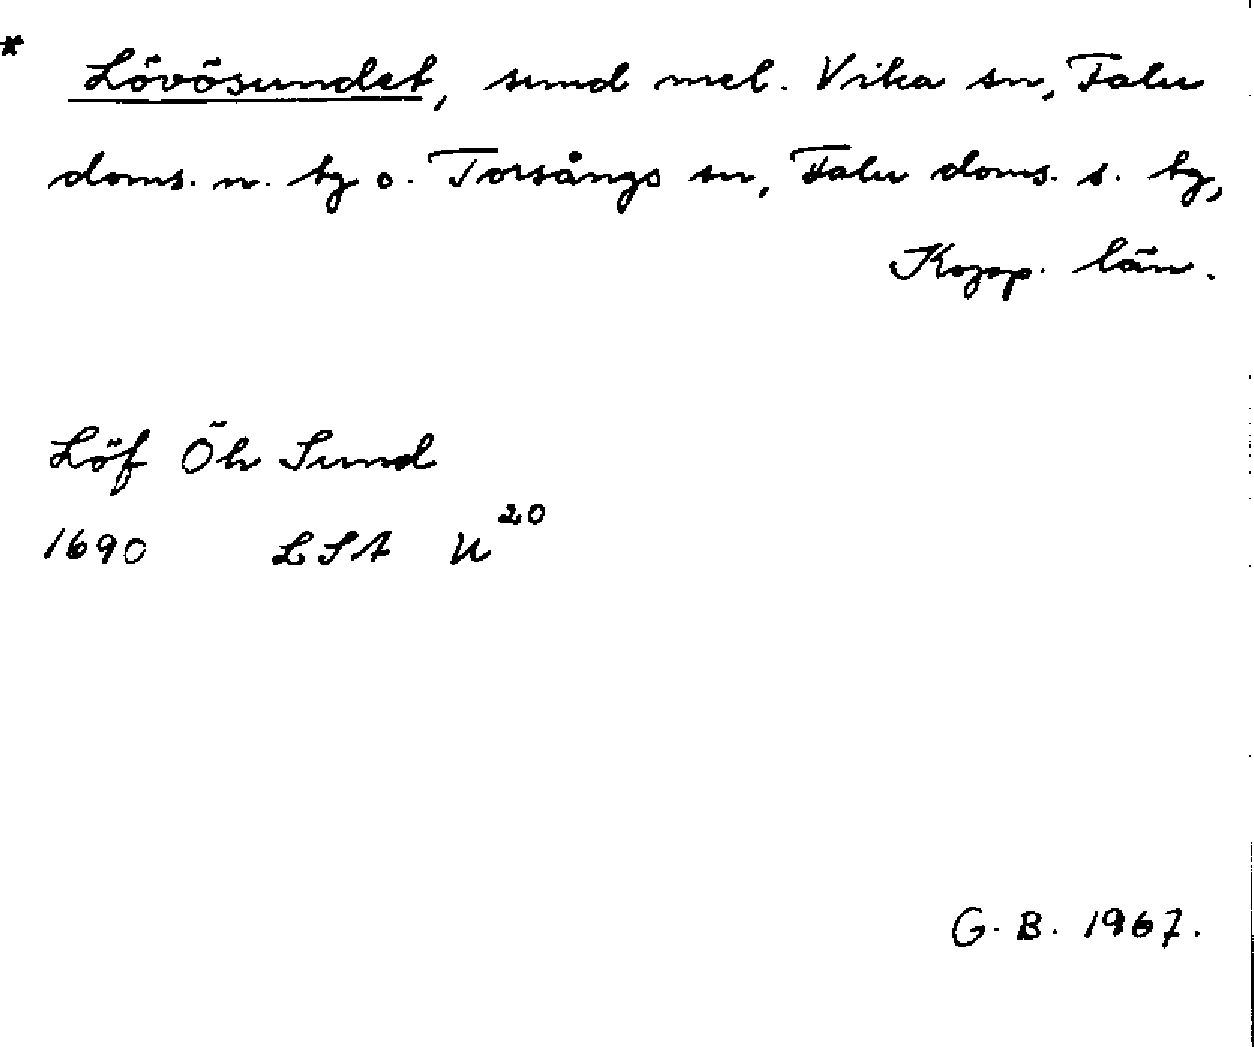 * Lövösundet, sund mel. Vika sn, Falu
doms. n. tg o. Torsångs sn, Falu doms. s. tg,
Kopp. län.
Löf Öh Sund
1690 LSA U²⁰
G. B. 1967.